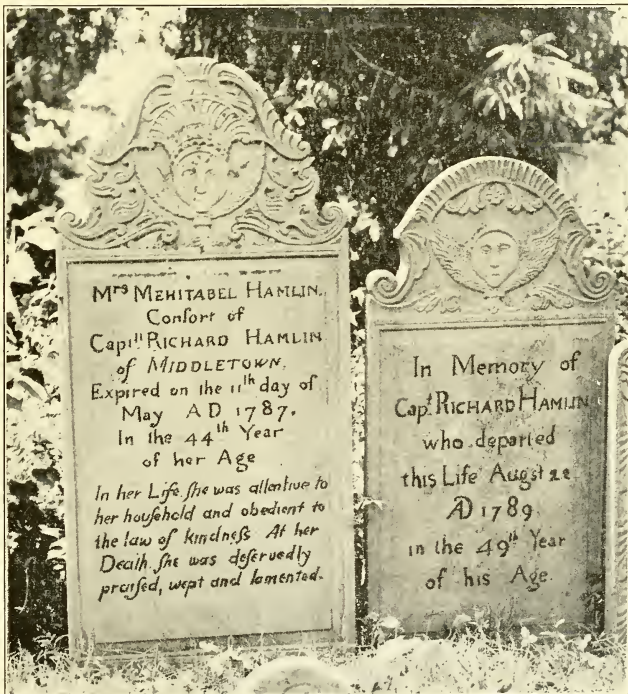 Mrs MEHITABEL HAMLIN.
Conſort of
Captn RICHARD HAMLIN
of MIDDLETOWN.
Expired on the 11th day of
May AD 1787.
In the 44th Year
of her Age
In her Life ſhe was attentive to
her household and obedient to
the law of kindneſs At her
Death ſhe was deſervedly
praiſed, wept and lamented.
In Memory of
Capt RICHARD HAMLIN
who departed
this Life Augst 22
AD 1789
in the 49th Year
of his Age